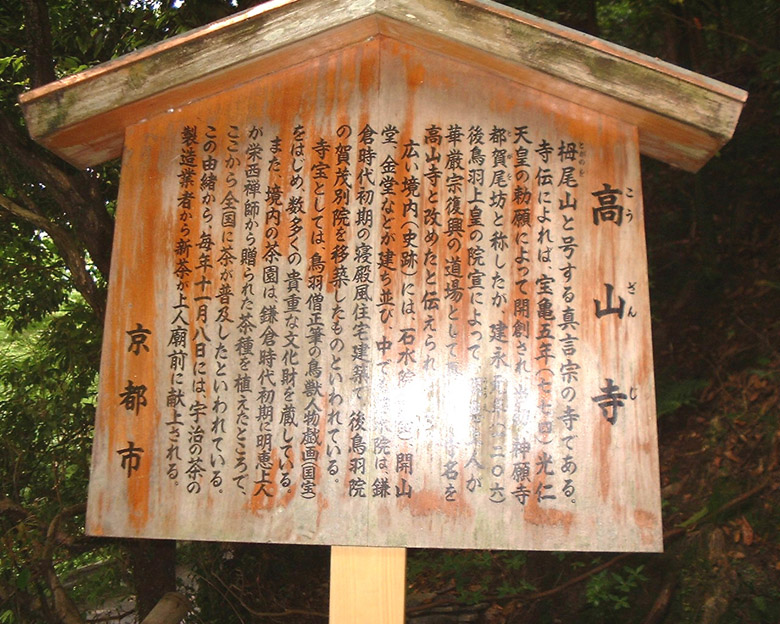 高山寺
こうざんじ
栂尾山と号する真言宗の寺である。
とがのを
寺伝によれば、宝亀五年(七七四)光仁
天皇の勅願によって開創され、神願寺
都賀尾坊と称したが、建永元年(一二〇六)
とがを
後鳥羽上皇の院宣によって、上人が
華厳宗復興の道場として寺名を
高山寺と改めたと伝えられ
広い境内(史跡)には、石水院、開山
堂、金堂などが建ち並び、中でも院は、鎌
倉時代初期の寝殿風住宅建築で、後鳥羽院
の賀茂別院を移築したものといわれている。
寺宝としては、鳥羽僧正筆の鳥獣人物戯画(国宝)
をはじめ、数多くの貴重な文化財を蔵している。
また、境内の茶園は、鎌倉時代初期に明恵上人
が栄西禅師から贈られた茶種を植えたところで、
ここから全国に茶が普及したといわれている。
この由緒から、毎年十一月八日には、宇治の茶の
製造業者から新茶が上人廟前に献上される。
京都市